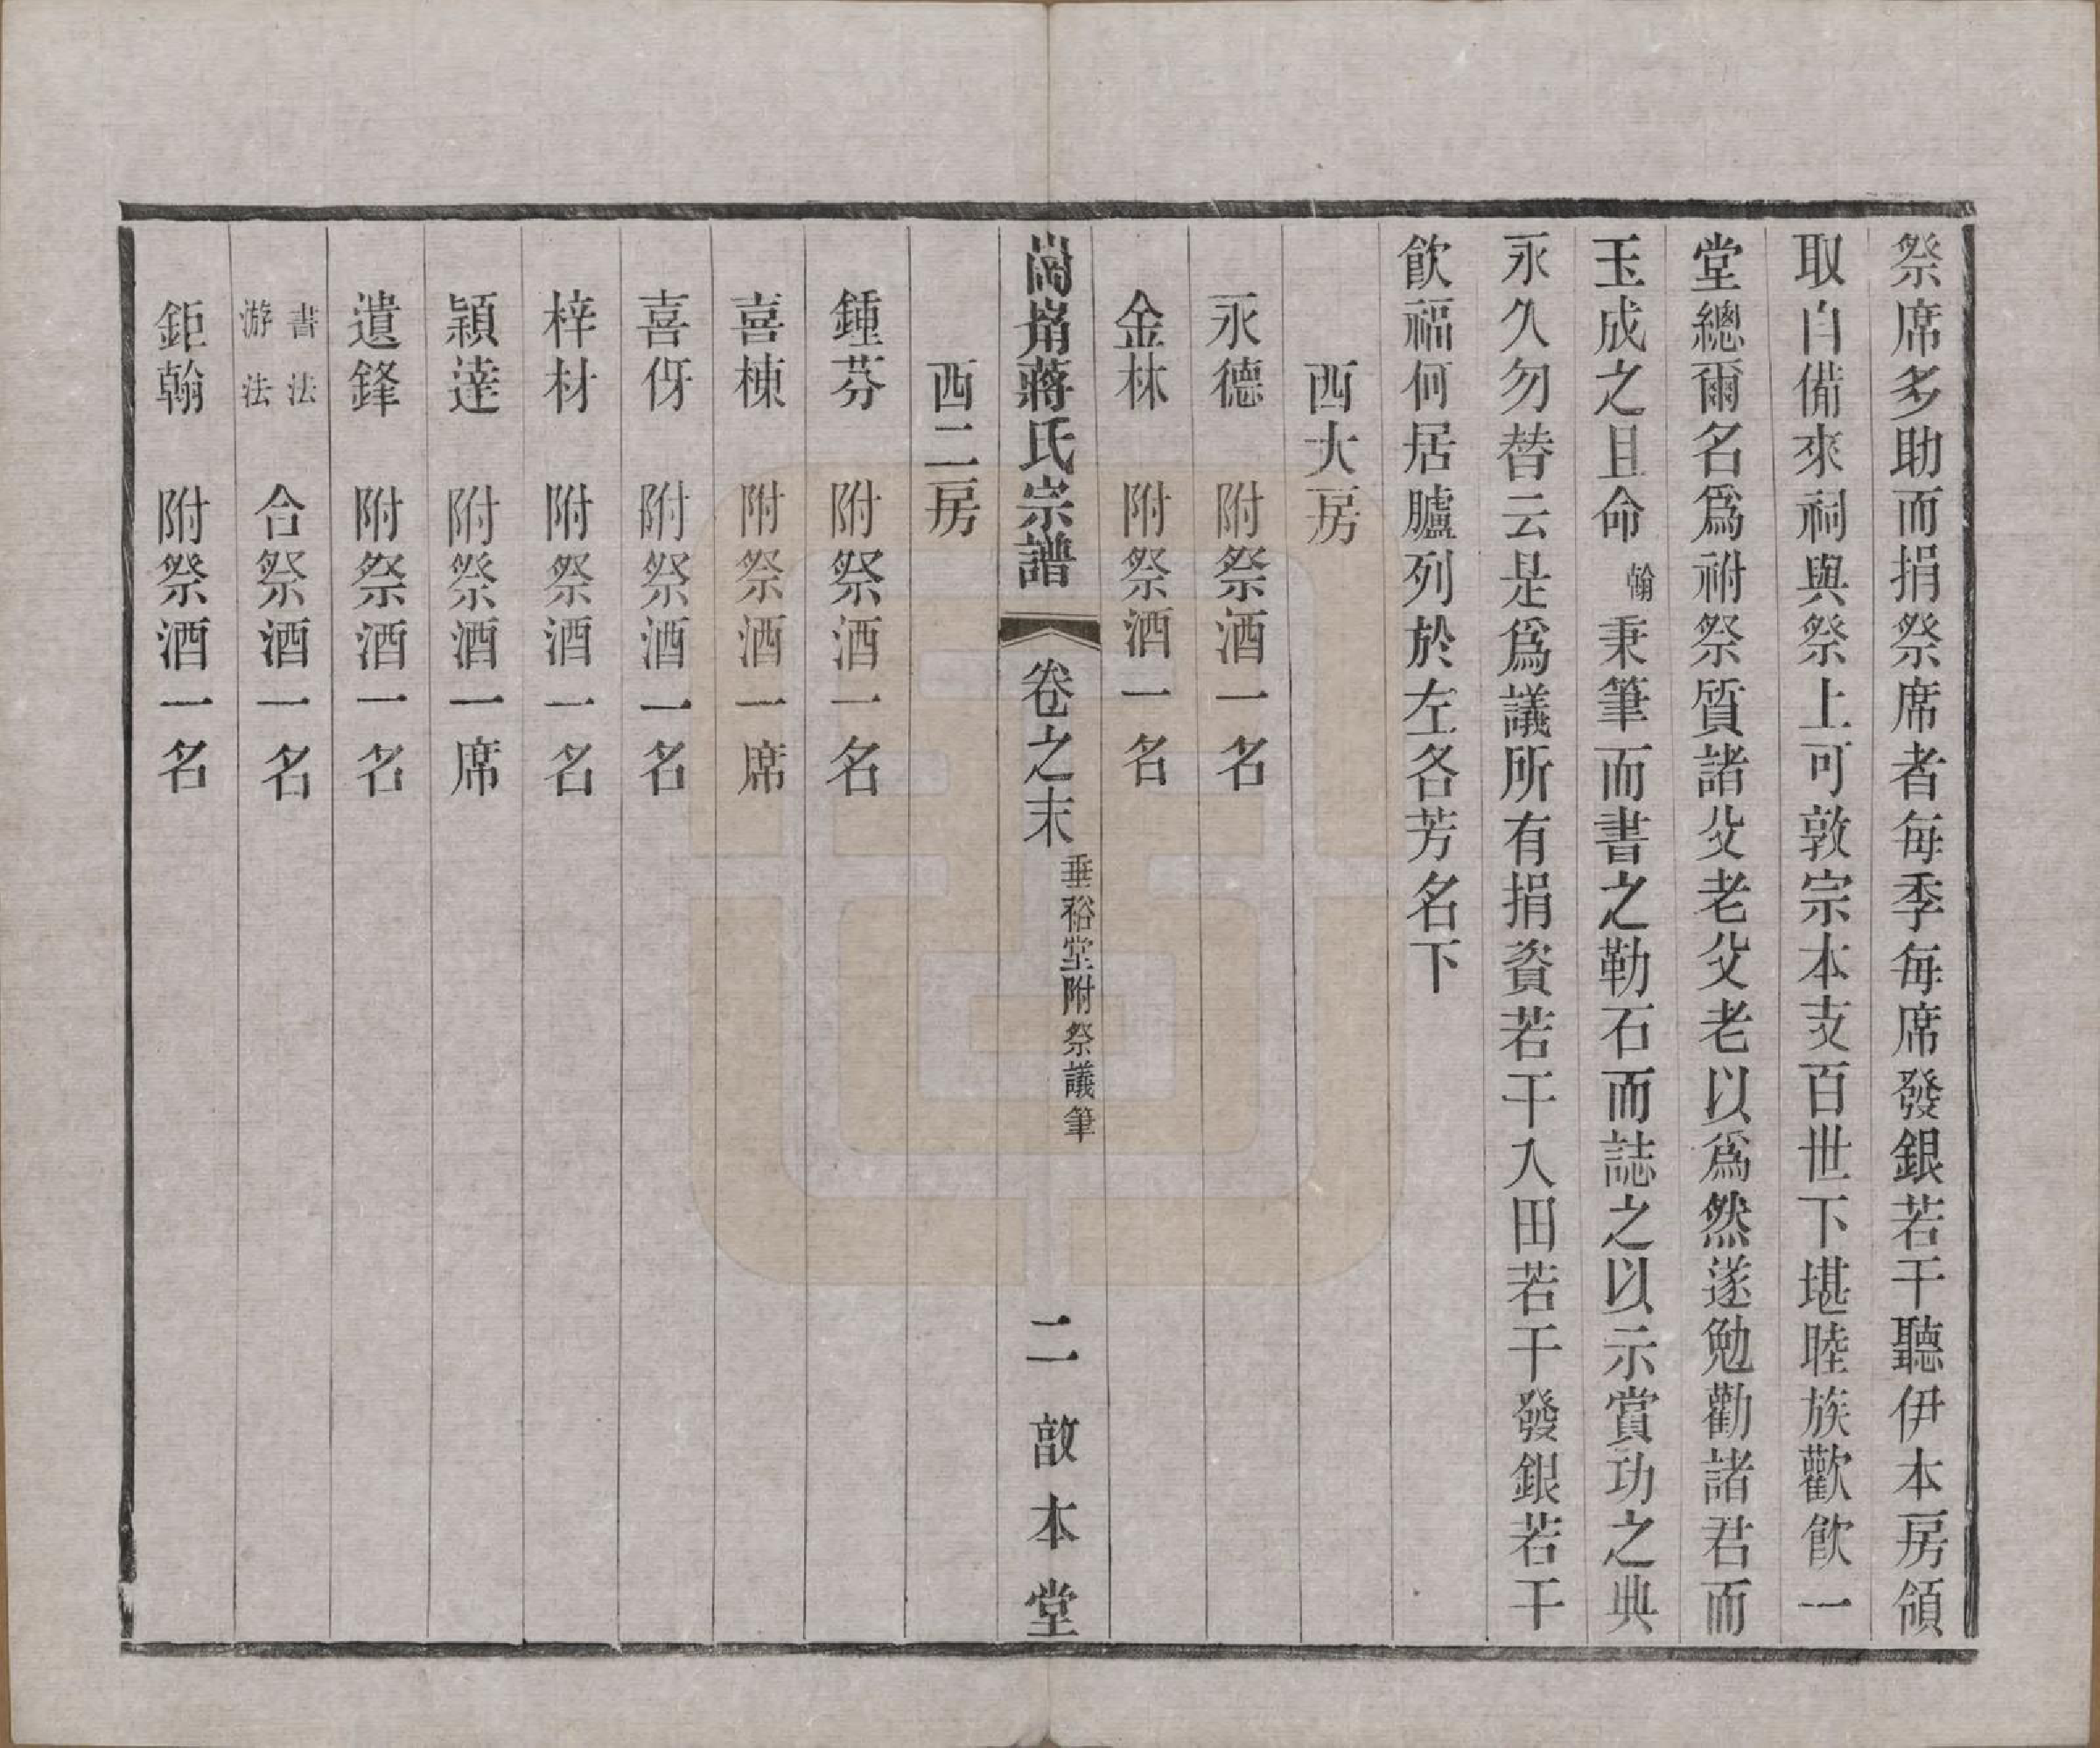 祭席多助而捐祭席者每季每席發銀若干聽伊本房領
取自備來祠與祭上可敦宗本支百世下堪睦族歡飲一
堂總爾名爲祔祭質諸父老父老以爲然遂勉勸諸君而
玉成之且命翰秉筆而書之勒石而誌之以示賞功之典
永久勿替云是爲議所有捐資若干入田若干發銀若干
飲福何居臚列於左各芳名下
西大房
永德 附祭酒一名
金林 附祭酒一名
蔣氏宗譜 卷之末 垂裕堂附祭議筆 二 敆本堂
西二房
鍾芬 附祭酒一名
喜棟 附祭酒一席
喜伢 附祭酒一名
梓材 附祭酒一名
穎達 附祭酒一席
遺鋒 附祭酒一名
書法 游法 合祭酒一名
鉅翰 附祭酒一名